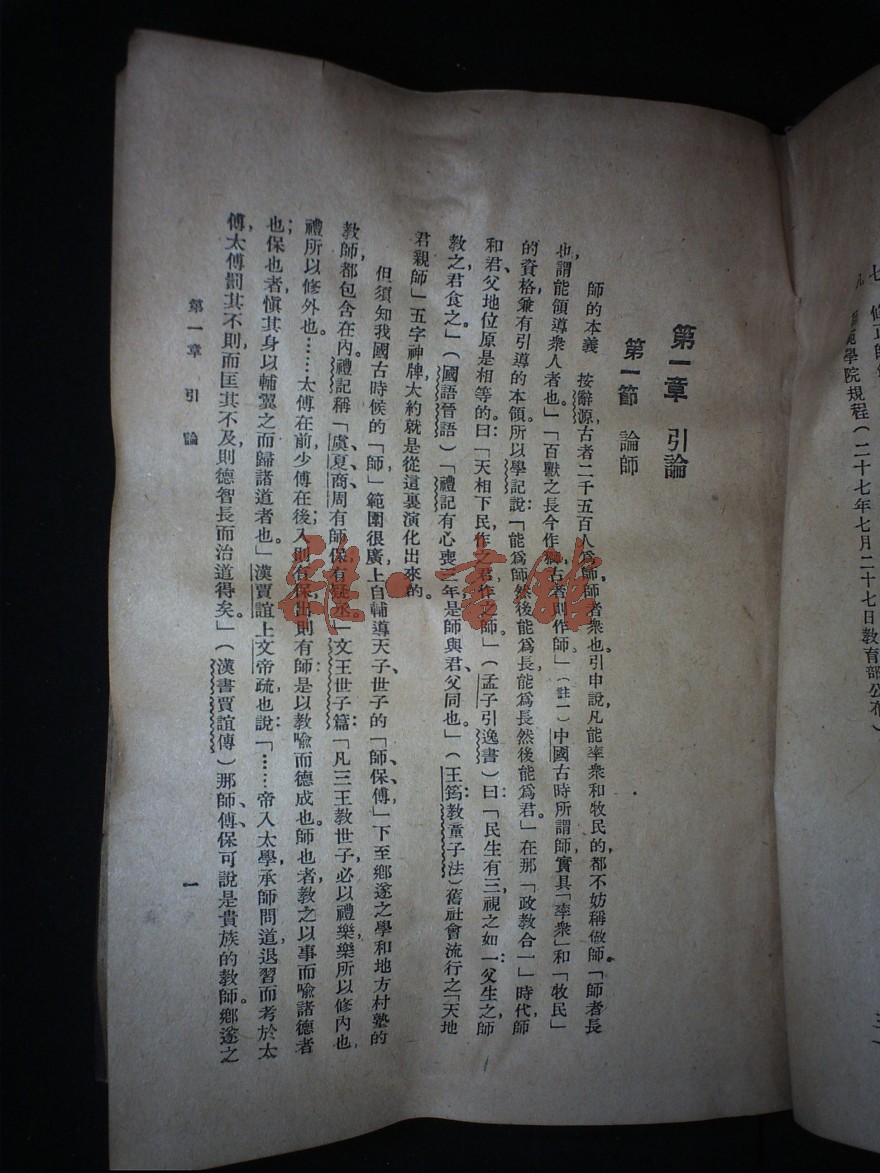 七
學院規程(二十七年七月二十七日教育部公布)
三一
第一章 引論
第一節 論師
師的本義 按辭源古者二千五百人爲師,師者衆也。引申說,凡能率衆和牧民的都不妨稱做師。「師者長
也,謂能領導衆人者也。」「百獸之長今作獅,古者則作師。」(註一)中國古時所謂師實具「率衆」和「牧民」
的資格兼有引導的本領。所以學記說:「能爲師然後能爲長,能爲長然後能爲君。」在那「政教合一」時代,師
和君、父地位原是相等的。曰:「天相下民,作之君,作之師。」(孟子引逸書)曰:「民生有三,視之如一:父生之,師
教之,君食之。」(國語晉語)「禮記有心喪三年,是師與君父同也。」(王筠:教童子法)舊社會流行之「天地
君親師」五字神牌大約就是從這裏演化出來的。
但須知我國古時候的「師」,範圍很廣,上自輔導天子、世子的「師、保、傅,」下至鄉遂之學和地方村塾的
教師,都包含在內。禮記稱「虞、夏、商、周有師保,有疑丞。」文王世子篇:「凡三王教世子,必以禮樂,樂所以修內也,
禮所以修外也。……太傅在前,少傅在後;入則有保,出則有師,是以教喩而德成也。師也者,教之以事而喩諸德者
也;保也者,愼其身以輔翼之而歸諸道者也。」漢賈誼上文帝疏也說:「……帝入太學,承師問道,退習而考於太
傅,太傅罰其不則,而匡其不及,則德智長而治道得矣。」(漢書賈誼傳)那師、傅、保可說是貴族的教師。鄉遂之
第一章 引論
一
雜·書館